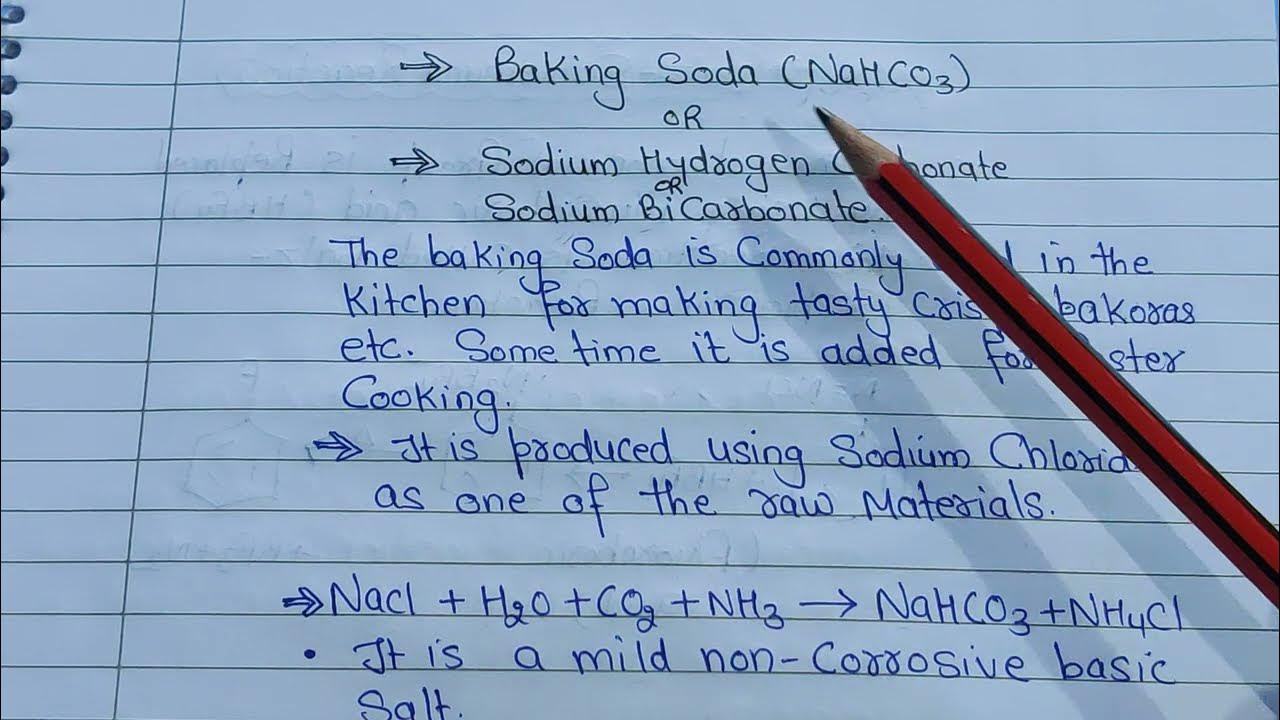 ⇒ Baking Soda (NaHCO3)
OR
⇒ Sodium Hydrogen
OR
Sodium BiCarbonate.
The baking Soda is Commonly in the
Kitchen for making tasty bakoras
etc. Some time it is added
Cooking.
⇒ It is produced using Sodium
as one of the raw Materials.
⇒ Nacl + H2O + CO2 + NH3 → NaHCO3 + NH4Cl
• It is a mild non-Corrosive basic
Salt.